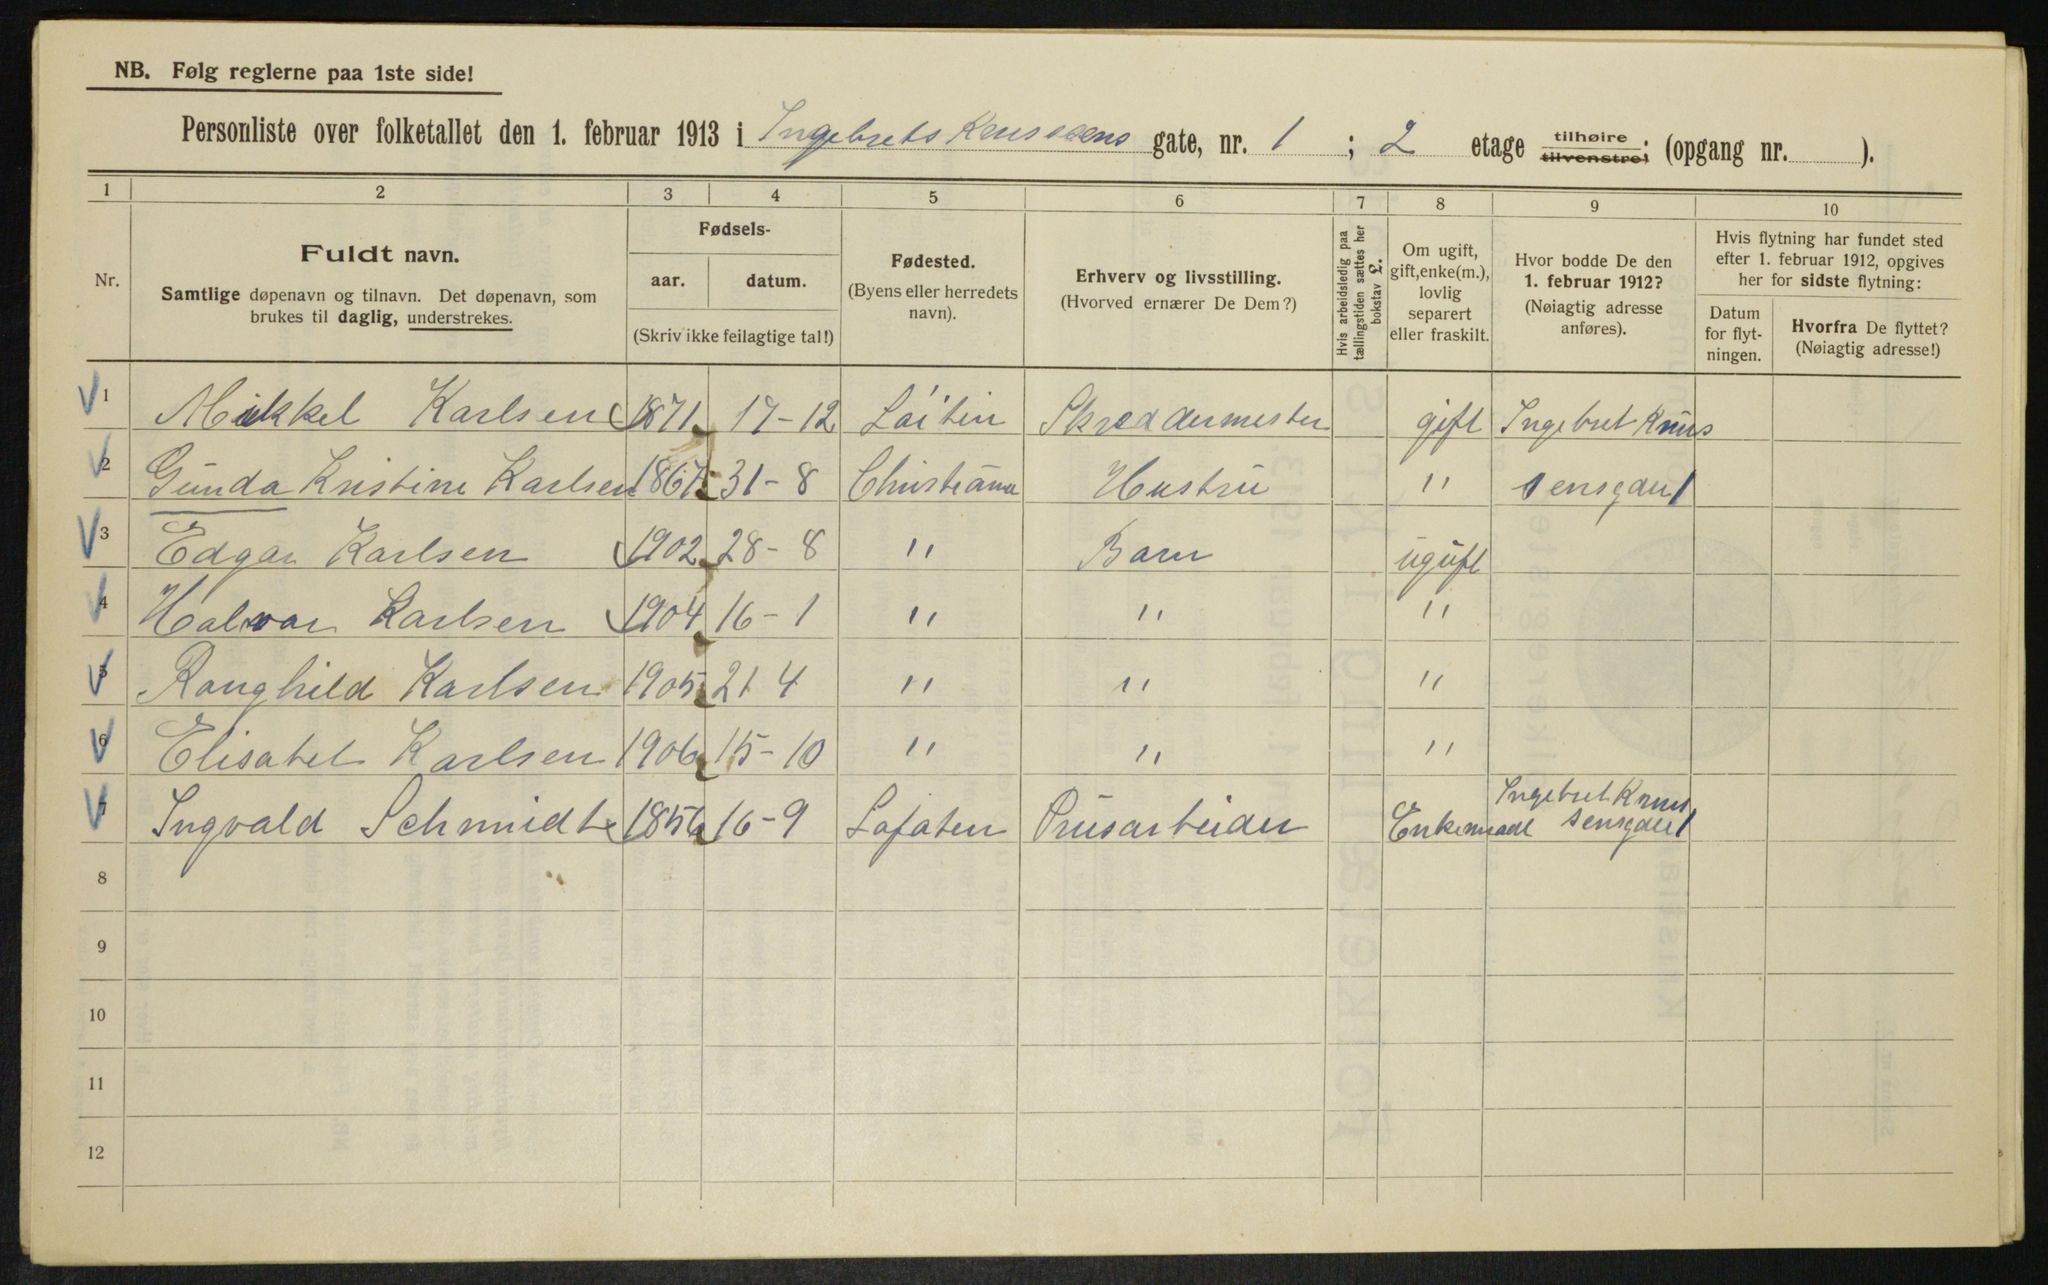 NB. Følg reglerne paa 1ste side!
Personliste over folketallet den 1. februar 1913 i Ingebrets Knussens gate, nr. 1 ; 2 etage tilhøire tilvenstre. (opgang nr. ).
1 2 3 4 5 6 7 8 9 10
Nr.
Fuldt navn.
Samtlige døpenavn og tilnavn. Det døpenavn, som
brukes til daglig, understrekes.
Fødsels-
aar. datum.
(Skriv ikke feilagtige tal!)
Fødested.
(Byens eller herredets
navn).
Erhverv og livsstilling.
(Hvorved ernærer De Dem?)
Hvis arbeidsledig paa
tællingstiden sættes her
bokstav L.
Om ugift,
gift, enke(m.),
lovlig
separert
eller fraskilt.
Hvor bodde De den
1. februar 1912?
(Nøiagtig adresse
anføres).
Hvis flytning har fundet sted
efter 1. februar 1912, opgives
her for sidste flytning:
Datum
for flyt-
ningen.
Hvorfra De flyttet?
(Nøiagtig adresse!)
1 Mikkel Karlsen 1871 17-12 Löiten Skreddermester gift Ingebret Knus
2 Gunda Kristine Karlsen 1867 31-8 Christiania Hustru " sensgdel
3 Edgar Karlsen 1902 28-8 " Barn ugift
4 Halvar Karlsen 1904 16-1 " " "
5 Ranghild Karlsen 1905 21 4 " " "
6 Elisabet Karlsen 1906 15-10 " " "
7 Ingvald Schmidt 1856 16-9 Lofoten Enkemand Ingebret Knus
sensgdel
8
9
10
11
12